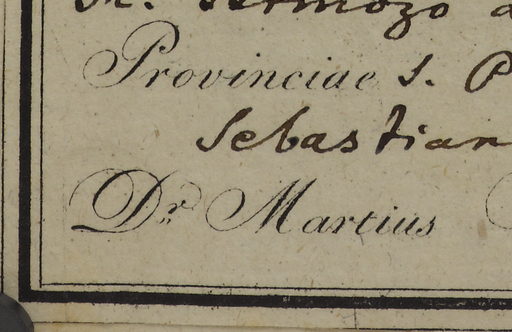 Provinciae S. P
Sebastian
Dr. Martius